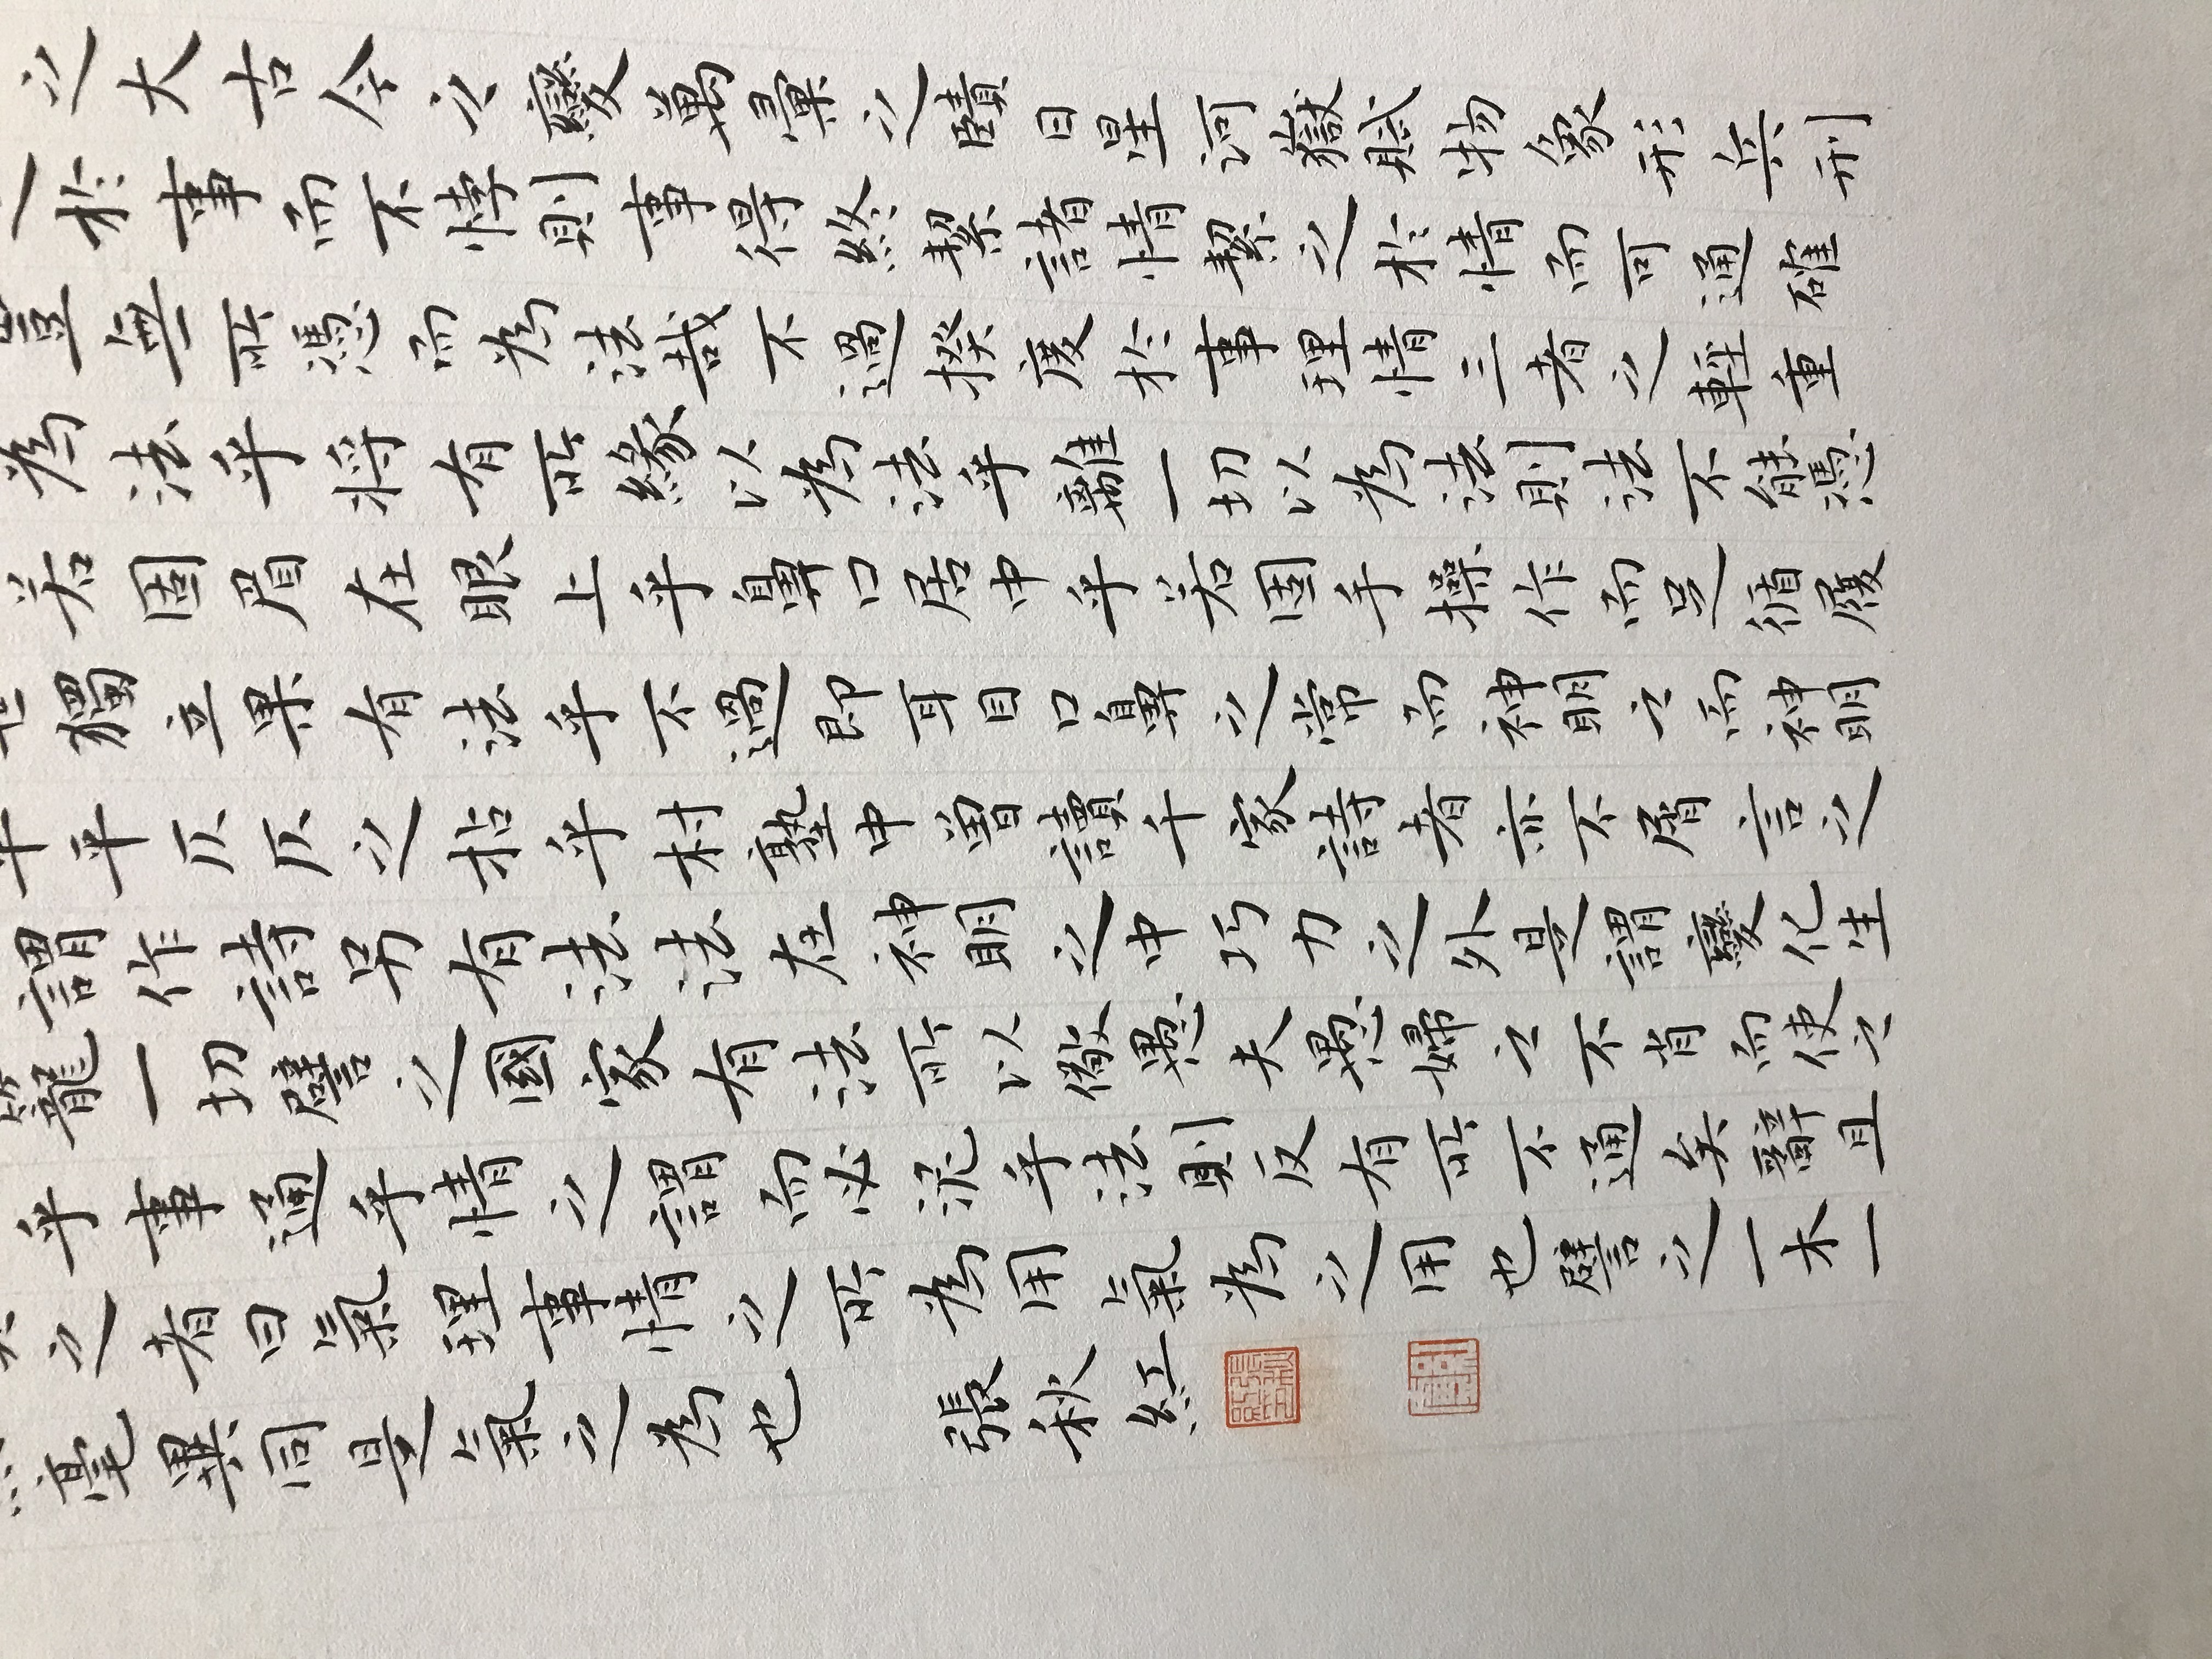 之大古今之變萬彙之賾日星河嶽賦物象形兵刑
於事而不悖則事得終絜諸情絜之於情而可通確
豈無所憑而為法哉不過揆度於事理情三者之輕重
為法乎將有所緣以為法乎離一切以為法則法不能憑
若固眉在眼上乎鼻口居中乎若固手操作而足循履
獨立果有法乎不過即耳目口鼻之常而神明之而神明
平平仄仄之拈乎村塾中曾讀千家詩者亦不屑言之
謂作詩另有法法在神明之中巧力之外是謂變化生
籠一切譬之國家有法所以儆愚夫愚婦之不肖而使之
乎事通乎情之謂而必泥乎法則反有所不通矣辭且
之者曰氣理事情之所為用氣為之用也譬之一木一
毫異同是氣之為也 張秋紅